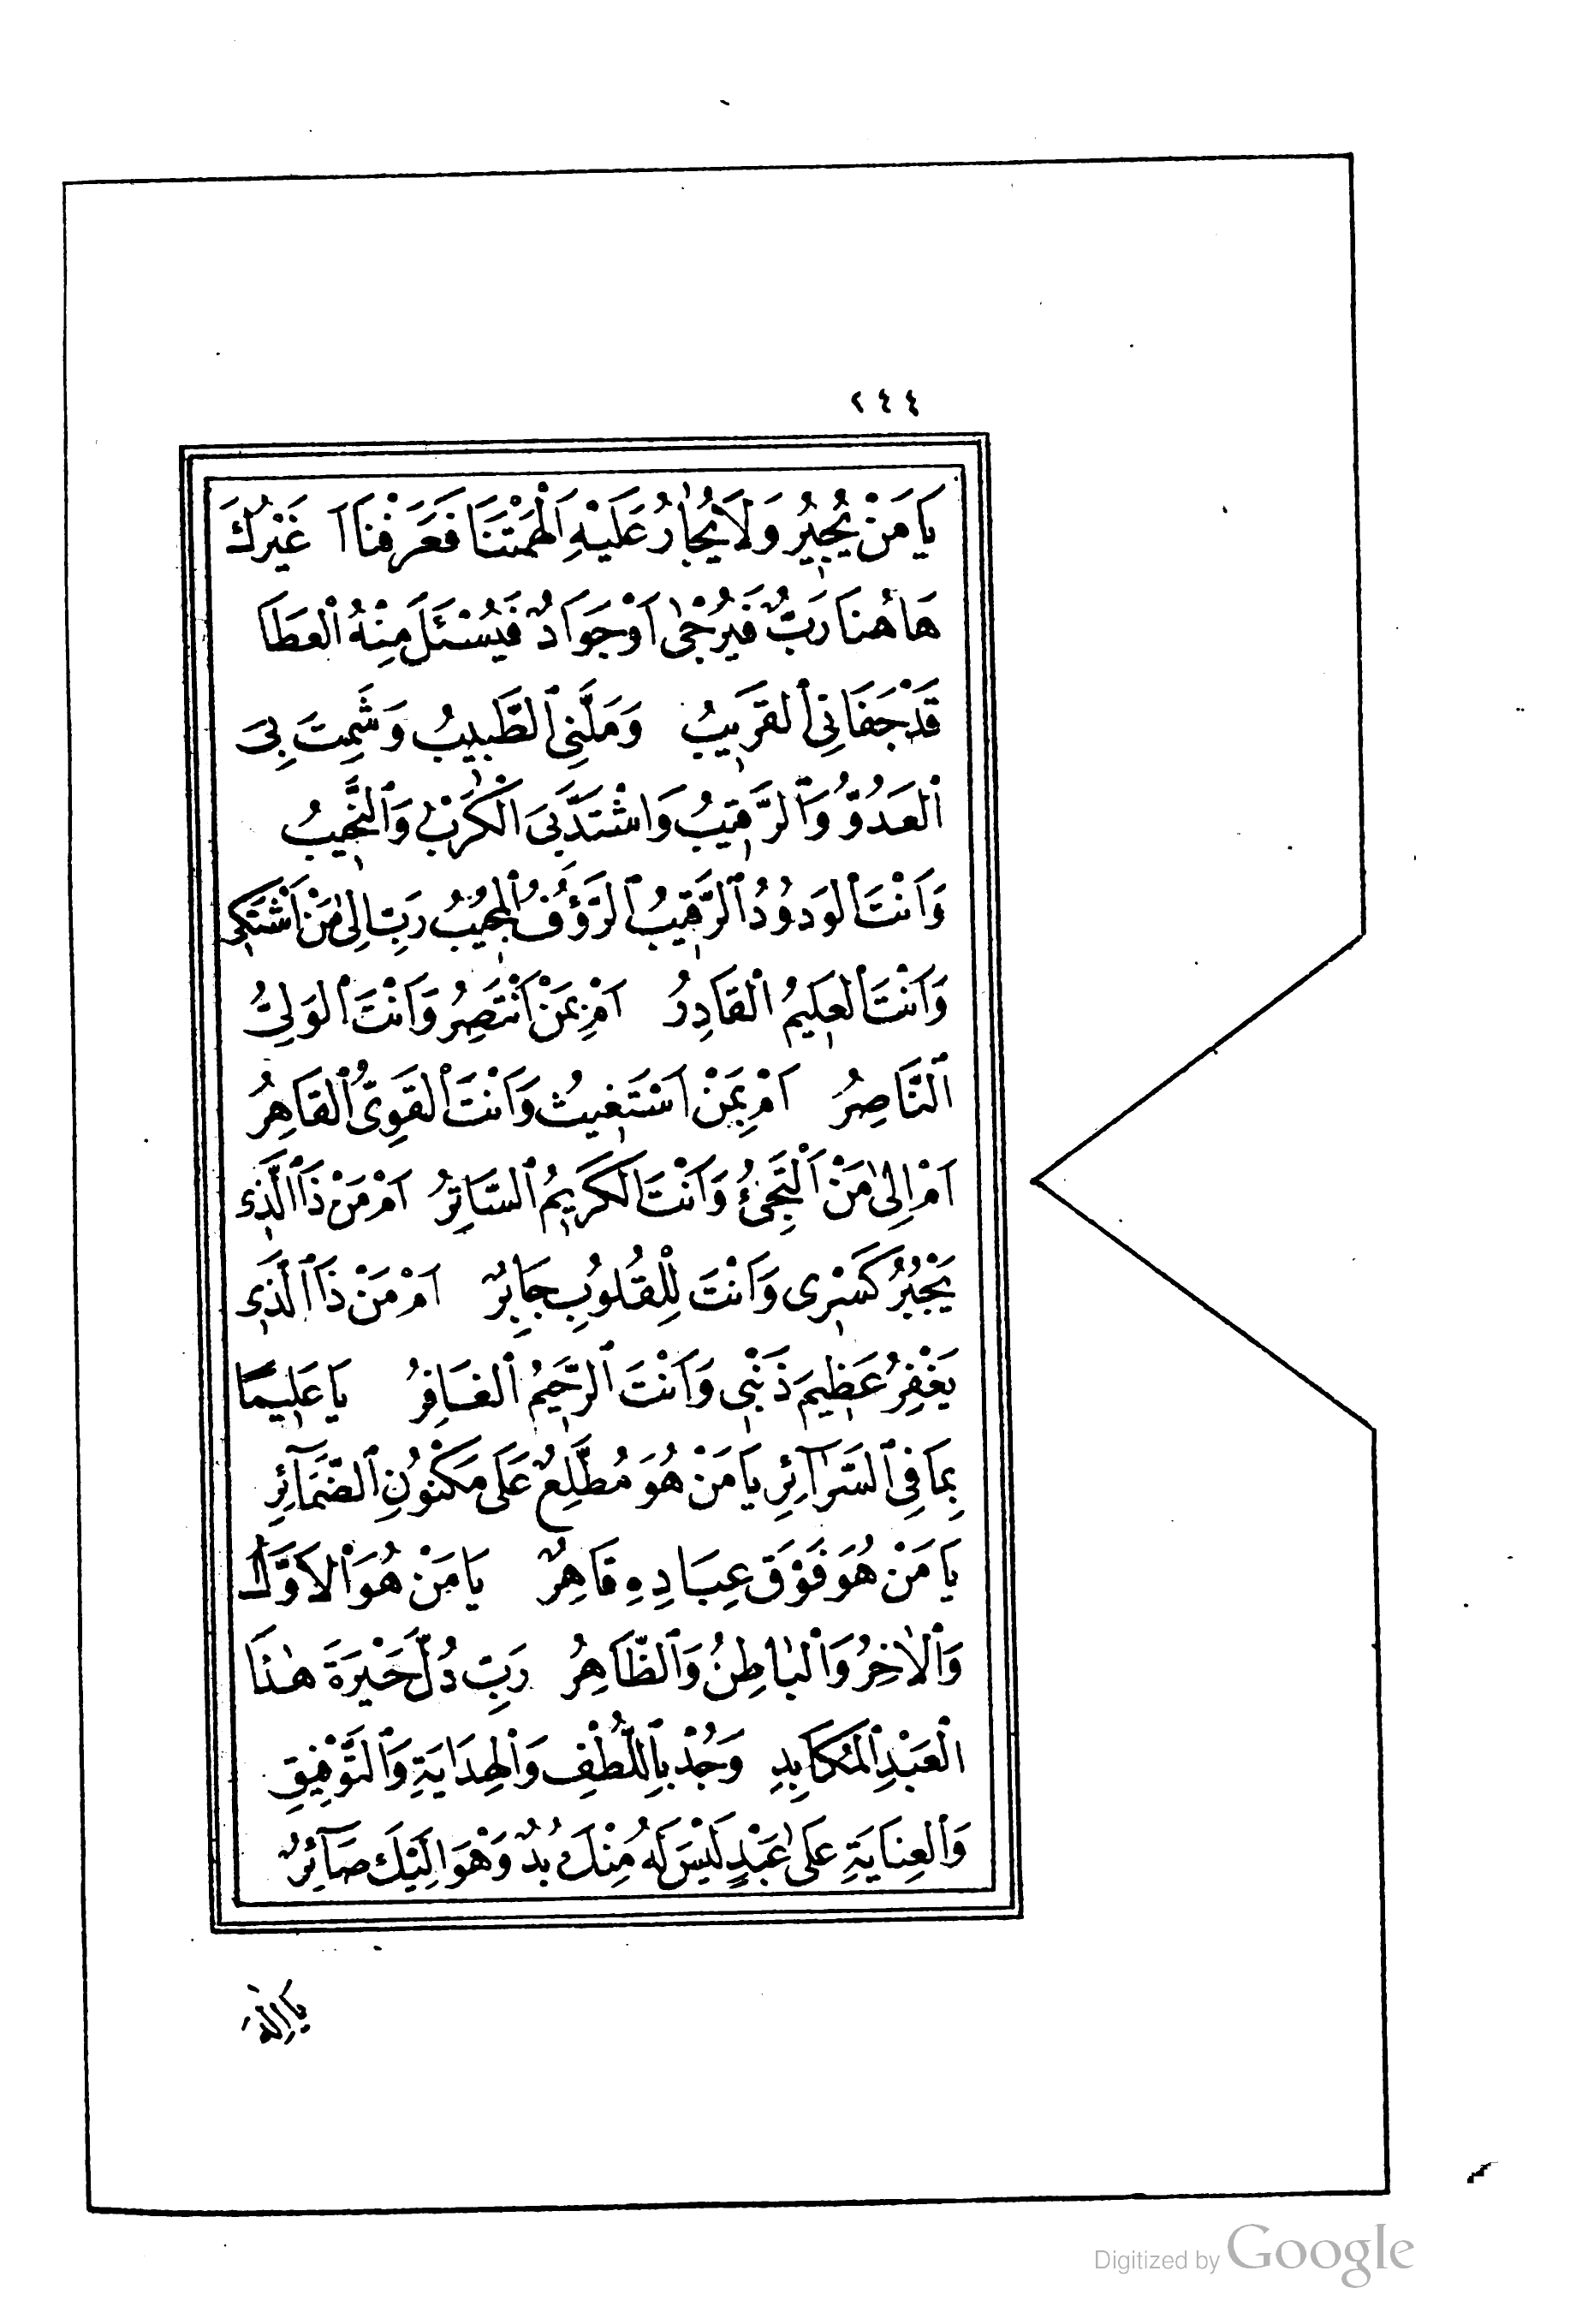 ٢٤٤
يَا مَنْ يُجِيرُ وَلَا يُجَارُ عَلَيْهِ اَلْهَمْتَنَا فَعَرَفْنَا آ غَيْرُكَ
هَاهُنَا رَبٌّ فَيُرْجٰى اَوْ جَوَادٌ فَيُسْئَلَ مِنْهُ الْعَطَا
قَدْ جَفَانِي الْقَرِيبُ وَمَلَّنِي الطَّبِيبُ وَشَمِتَ بِيَ
الْعَدُوُّ وَالرَّقِيبُ وَاشْتَدَّ بِيَ الْكَرْبُ وَالنَّحِيبُ
وَاَنْتَ الْوَدُودُ الرَّقِيبُ الرَّؤُفُ الْمُجِيبُ رَبِّ اِلٰى مَنْ اَشْتَكِي
وَاَنْتَ الْعَلِيمُ الْقَادِرُ اَمْ بِمَنْ اَنْتَصِرُ وَاَنْتَ الْوَلِيُّ
النَّاصِرُ اَمْ بِمَنْ اَسْتَغِيثُ وَاَنْتَ الْقَوِيُّ الْقَاهِرُ
اَمْ اِلٰى مَنْ اَلْتَجِئُ وَاَنْتَ الْكَرِيمُ السَّاتِرُ اَمْ مَنْ ذَا الَّذِي
يَجْبُرُ كَسْرِى وَاَنْتَ لِلْقُلُوبِ جَابِرٌ اَمْ مَنْ ذَا الَّذِي
يَغْفِرُ عَظِيمَ ذَنْبِى وَاَنْتَ الرَّحِيمُ الْغَافِرُ يَا عَلِيمًا
بِمَا فِي السَّرَآئِرِ يَا مَنْ هُوَ مُطَّلِعٌ عَلَى مَكْنُونِ الضَّمَآئِرِ
يَا مَنْ هُوَ فَوْقَ عِبَادِهِ قَاهِرٌ يَا مَنْ هُوَ الْاَوَّلُ
وَالْاٰخِرُ وَالْبَاطِنُ وَالظَّاهِرُ رَبِّ دُلَّ حَيْرَةَ هٰذَا
الْعَبْدِ الْمُكَابِدِ وَجُدْ بِاللُّطْفِ وَالْهِدَايَةِ وَالتَّوْفِيقِ
وَالْعِنَايَةِ عَلٰى عَبْدٍ لَيْسَ لَهُ مِنْكَ بُدٌّ وَهْوَ اِلَيْكَ صَآئِرٌ
يَا اِلٰهَ
Digitized by Google